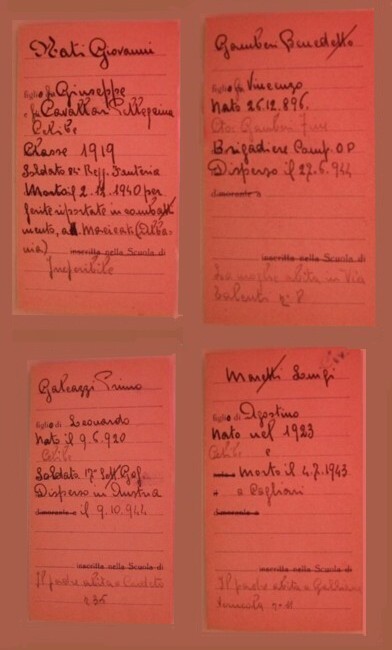 Nati Giovanni
figlio fu Giuseppe
e fu Cavallari Pellegrina
Celibe
Classe 1919
Soldato Regg. Fanteria
Morto il 2.12.1940 per
ferite riportate in combatti
mento, a (Alba-
nia) inscritta nella Scuola di
Irreperibile
Gamberi Benedetto
figlio fu Vincenzo
Nato 26.12.896.
Brigadiere Comp. O.P
Disperso il 27.6.944
dimorante a
inscritta nella Scuola di
La moglie abita in Via
n° 8
Galeazzi Primo
figlio di Leonardo
Nato il 9.6.920
Celibe
Soldato 17°
Disperso in Austria
dimorante a il 9.10.944
inscritta nella Scuola di
Il padre abita a
n 35
Moretti Luigi
figlio di Agostino
Nato nel 1923
Celibe e
nato a morto il 4.7.1943
a Cagliari
dimorante a
inscritta nella Scuola di
Il padre abita a
n° 11